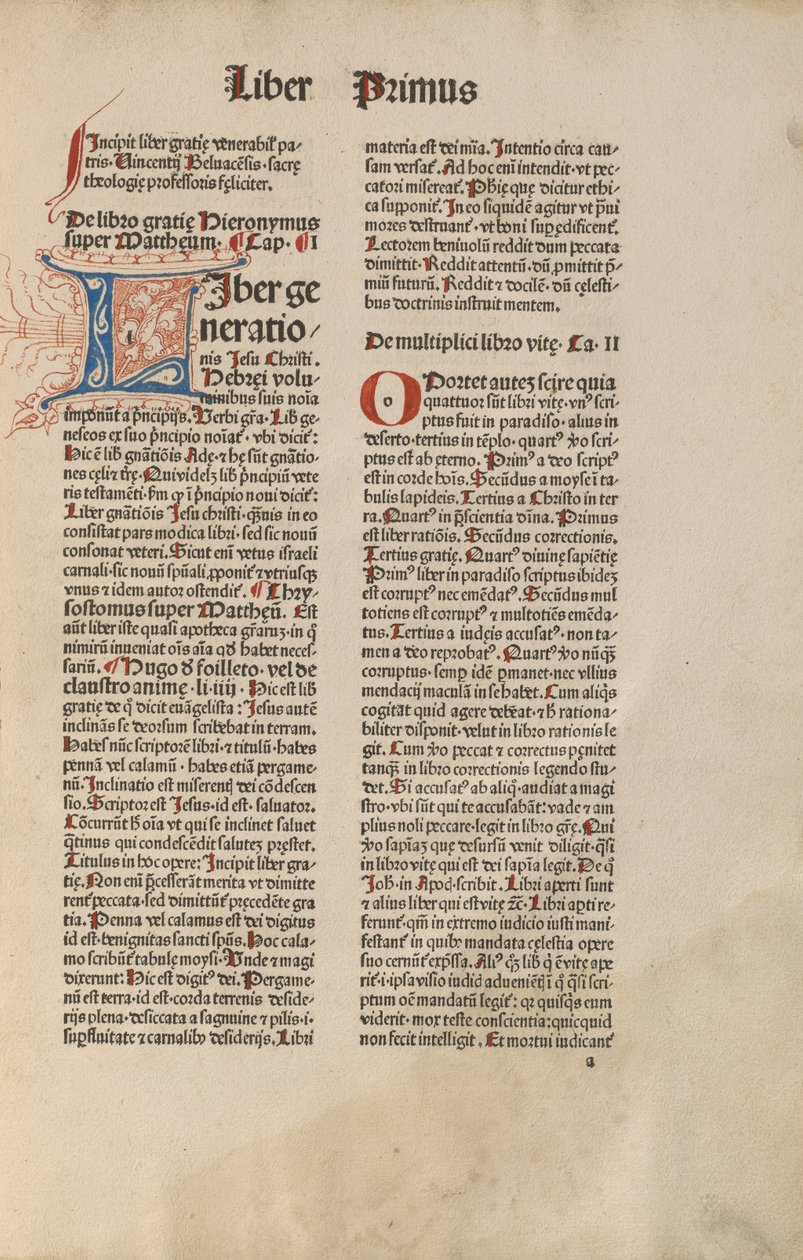 Liber Primus
Incipit liber gratię venerabil̄ pa⸗
tris· Vincentij Beluacēsis· sacrę
theologię professoris fęliciter.
De libro gratię Hieronymus
super Matthęum· ¶ Cap· ¶ I
LIber ge
neratio⸗
nis Jesu Christi.
Hebręi volu⸗
minibus suis noīa
imponūt a p̄ncipijs. Verbi gr̄a· Lib̄ ge⸗
neseos ex suo p̄ncipio noīat᷑· vbi dicit᷑:
Hic ē lib̄ gnātiōis Adę· ⁊ hę sūt gnātio⸗
nes cęli ⁊ tr̄ę. Qui videlꝫ lib̄ p̄ncipiū vete
ris testamēti· ẜm qͥ ī p̄ncipio noui dicit᷑:
Liber gnātiōis Jesu christi· qͣuis in eo
consistat pars modica libri· sed sic nouū
consonat veteri. Sicut enī vetus israeli
carnali· sic nouū spūali ꝓponit᷑ ⁊ vtriusqꝫ
vnus ⁊ idem autor ostendit᷑. ¶ Chry⸗
sostomus super Matthęū. Est
aūt liber iste quasi apotheca gr̄aruꝫ· in qͣ
nimirū inueniat oīs aīa qđ habet neces⸗
sariū. ¶ Hugo đ foilleto· vel de
claustro animę· li· iiij· Hic est lib̄
gratię de qͦ dicit euāgelista: Jesus autē
inclinās se deorsum scribebat in terram.
Habes nūc scriptorē libri· ⁊ titulū· habes
pennā vel calamū· habes etiā pergame⸗
nū. Inclinatio est miserentꝭ dei cōdescen
sio. Scriptor est Jesus· id est· saluator.
Cōcurrūt h̄ oīa vt qui se inclinet saluet
qͣtinus qui condescēdit saluteꝫ pręstet.
Titulus in hoc opere: Incipit liber gra⸗
tię. Non enī p̄cesserāt merita vt dimitte
rent᷑ peccata· sed dimittūt᷑ pręcedēte gra
tia. Penna vel calamus est dei digitus
id est· benignitas sancti spūs. Hoc cala⸗
mo scribūt᷑ tabulę moysi. Vnde ⁊ magi
dixerunt: Hic est digitꝰ dei. Pergame⸗
nū est terra· id est· corda terrenis deside⸗
rijs plena· desiccata a sagnuine ⁊ pilis· i·
suꝑfluitate ⁊ carnalibꝰ desiderijs. Libri
materia est dei mīa. Intentio circa cau⸗
sam versat᷑. Ad hoc enī intendit· vt pec⸗
catori misereat᷑. Ph̄ię quę dicitur ethi⸗
ca supponit᷑. In eo siquidē agitur vt p̄ui
mores destruant᷑· vt boni suꝑędificent᷑.
Lectorem beniuolū reddit dum peccata
dimittit. Reddit attentū· dū ꝓmittit p̄⸗
miū futurū. Reddit ⁊ docilē· dū cęlesti⸗
bus doctrinis instruit mentem.
De multiplici libro vitę· Ca· II
OPortet auteꝫ scire quia
quattuor sūt libri vitę· vnꝰ scri⸗
ptus fuit in paradiso· alius in
deserto· tertius in tēplo· quartꝰ ꝟo scri⸗
ptus est ab ęterno. Primꝰ a deo scriptꝰ
est in corde hoīs. Secūdus a moyse ī ta⸗
bulis lapideis. Tertius a Christo in ter
ra. Quartꝰ in p̄scientia dīna. Primus
est liber ratiōis. Secūdus correctionis.
Tertius gratię. Quartꝰ diuinę sapiētię
Primꝰ liber in paradiso scriptus ibideꝫ
est corruptꝰ nec emēdatꝰ. Secūdus mul
totiens est corruptꝰ ⁊ multotiēs emēda⸗
tus. Tertius a iudęis accusatꝰ· non ta⸗
men a deo reprobatꝰ. Quartꝰ ꝟo nūqꝫ
corruptus· semꝑ idē ꝑmanet· nec vllius
mendacij maculā in se habet. Cum aliqͥs
cogitat quid agere debēat· ⁊ h̄ rationa⸗
biliter disponit· velut in libro rationis le
git. Cum ꝟo peccat ⁊ correctus pęnitet
tanqꝫ in libro correctionis legendo stu⸗
det. Si accusatꝰ ab aliqͦ· audiat a magi
stro· vbi sūt qui te accusabāt: vade ⁊ am
plius noli peccare· legit in libro gr̄ę. Qui
ꝟo sapīaꝫ quę desursū venit diligit· qͣsi
in libro vitę qui est dei sapīa legit. De qͦ
Joh̄· in Apoc̄· scribit. Libri aperti sunt
⁊ alius liber qui est vitę ⁊c̄. Libri aꝑti re⸗
ferunt᷑· qm̄ in extremo iudicio iusti mani⸗
festant᷑ in quibꝰ mandata cęlestia opere
suo cernūt᷑ exp̄ssa. Aliꝰ qꝫ lib̄ qͥ ē vitę ape
rit᷑· i· ipsa visio iudicꝭ aduenientꝭ ī qͦ qͣsi scri⸗
ptum oē mandatū legit᷑: qꝛ quisqͥs eum
viderit· mox teste conscientia: quicquid
non fecit intelligit. Et mortui iudicant᷑
a